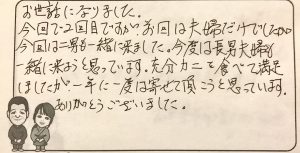 お世話になりました。
今回で2回目ですが前回は夫婦だけでしたが
今回は二男も一緒に来ました。今度は長男夫婦も
一緒に来ようと思っています。充分カニを食べて満足
しましたが一年に一度は寄せて頂こうと思っています。
ありがとうございました。